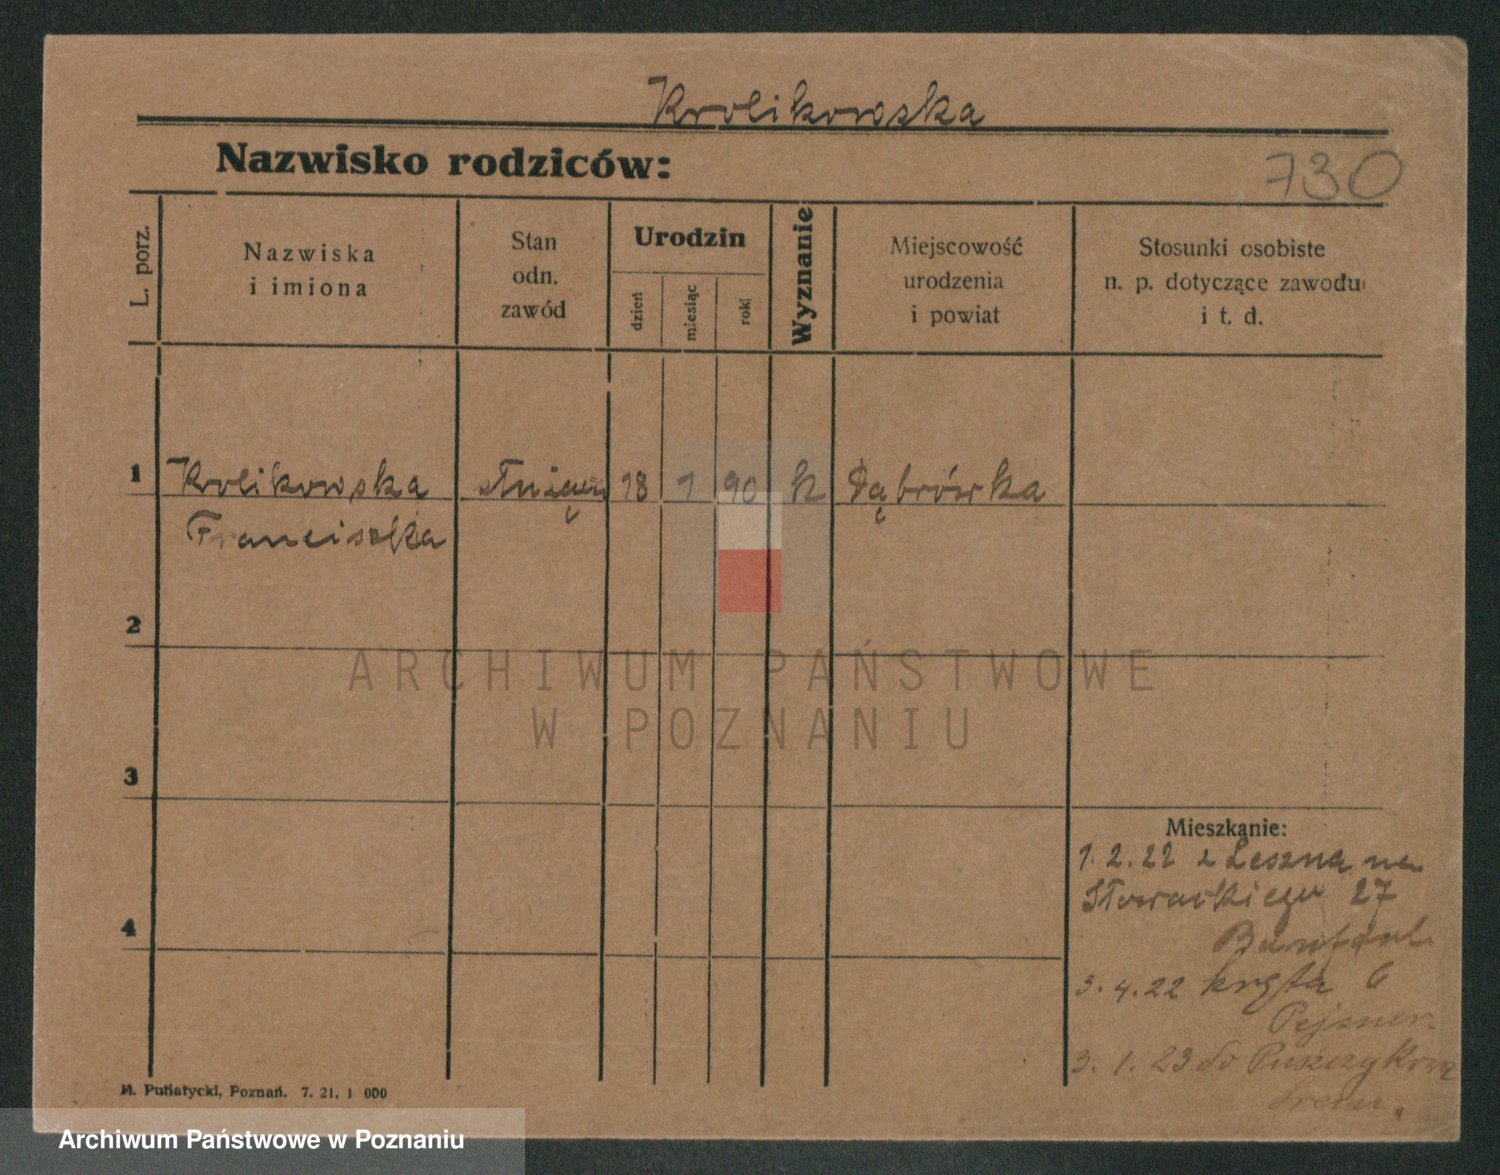 Krolikowska
Nazwisko rodziców:
730
L. porz.
Nazwiska
i imiona
Stan
odn.
zawód
Urodzin
dzień
miesiąc
rok
Wyznanie
Miejscowość
urodzenia
i powiat
Stosunki osobiste
n. p. dotyczące zawodu
i t. d.
1 Krolikowska służąca 18 1 90 k Dąbrówka
Franciszka
2
ARCHIWUM PAŃSTWOWE
W POZNANIU
3
Mieszkanie:
1.2.22 z Leszna na
Słowackiego 27
4
3.4.22 kręta 6
Pejsner
3.1.23 do Puszczykowa
Śrem.
M. Putiatycki, Poznań. 7. 21. 1 000
Archiwum Państwowe w Poznaniu